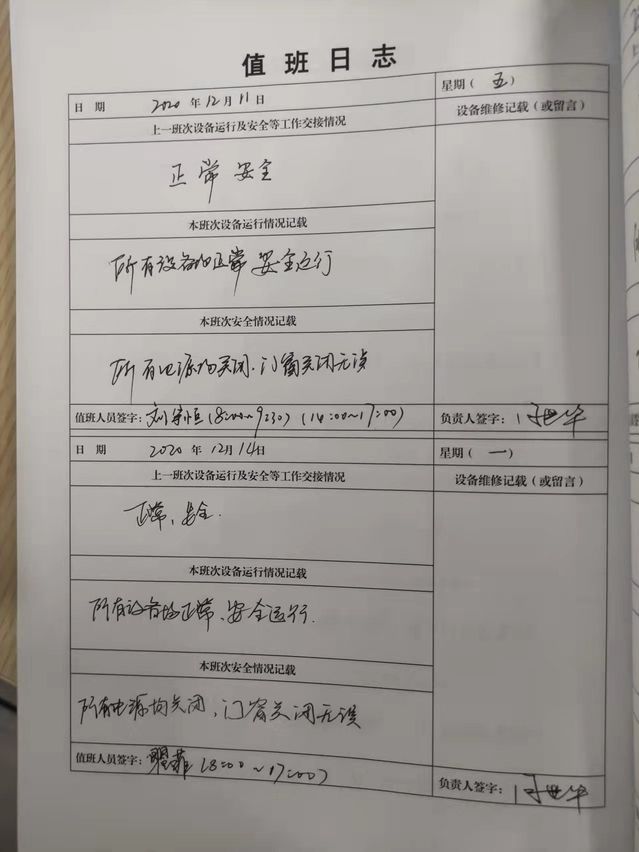 值班日志
日 期 2020年12月11日 星期(五)
上一班次设备运行及安全等工作交接情况 设备维修记载(或留言)
正常 安全
本班次设备运行情况记载
所有设备均正常 安全运行
本班次安全情况记载
所有电源均关闭、门窗关闭无误
值班人员签字: 刘 恒(8:00~9:30)(14:00~17:00) 负责人签字:
日 期 2020年12月14日 星期(一)
上一班次设备运行及安全等工作交接情况 设备维修记载(或留言)
正常、安全.
本班次设备运行情况记载
所有设备均正常、安全运行.
本班次安全情况记载
所有电源均关闭,门窗关闭无误
值班人员签字: (8:00~17:00)
负责人签字: